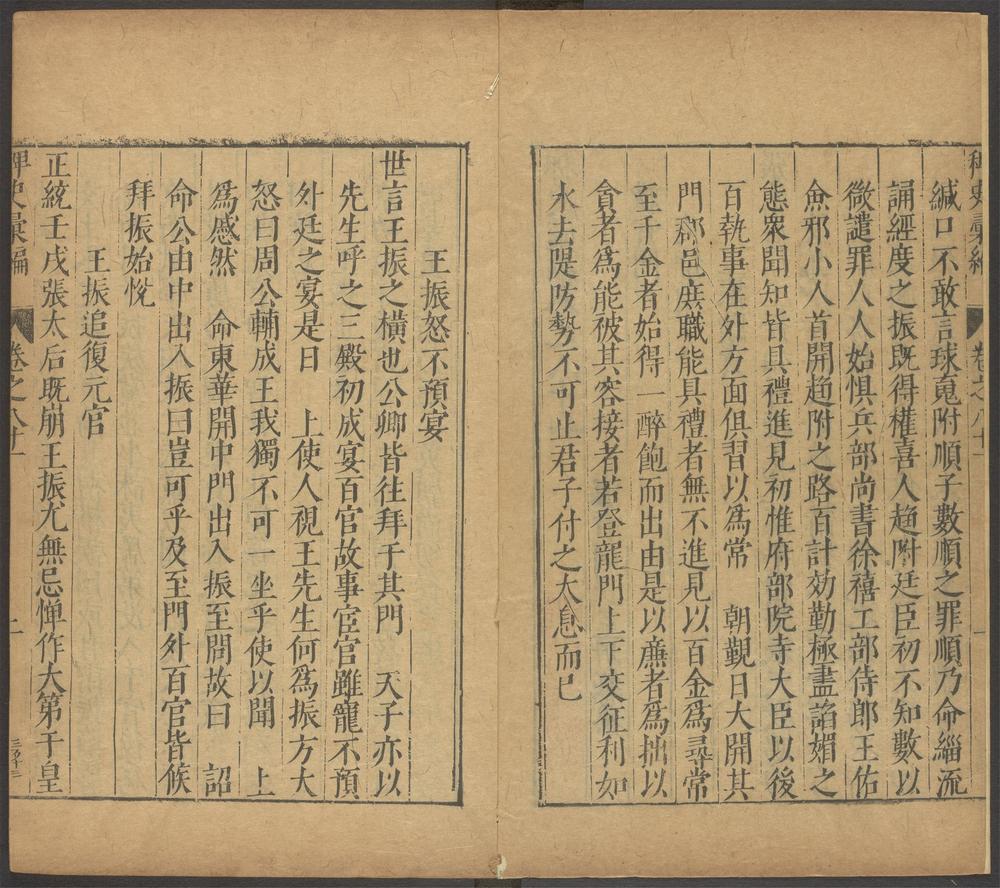 稗史彙編 卷之八十一 一
緘口不敢言球䰟附順子數順之罪順乃命緇流
誦經度之振既得權喜人趨附廷臣初不知數以
微譴罪人人始惧兵部尚書徐禧工部侍郎王佑
僉邪小人首開趨附之路百計効勤極盡諂媚之
態衆聞知皆具禮進見初惟府部院寺大臣以後
百執事在外方面俱習以爲常 朝覲日大開其
門郡邑庶職能具禮者無不進見以百金爲尋常
至千金者始得一醉飽而出由是以亷者爲拙以
貪者爲能被其容接者若登龍門上下交征利如
水去隄防勢不可止君子付之太息而已
王振怒不預宴
世言王振之横也公卿皆往拜于其門 天子亦以
先生呼之三殿初成宴百官故事宦官雖寵不預
外廷之宴是日 上使人視王先生何爲振方大
怒曰周公輔成王我獨不可一坐乎使以聞 上
爲感然 命東華開中門出入振至問故曰 詔
命公由中出入振曰豈可乎及至門外百官皆候
拜振始恱
王振追復元官
正統壬戌張太后既崩王振尤無忌憚作大第于皇
稗史彙編 卷之八十一 二